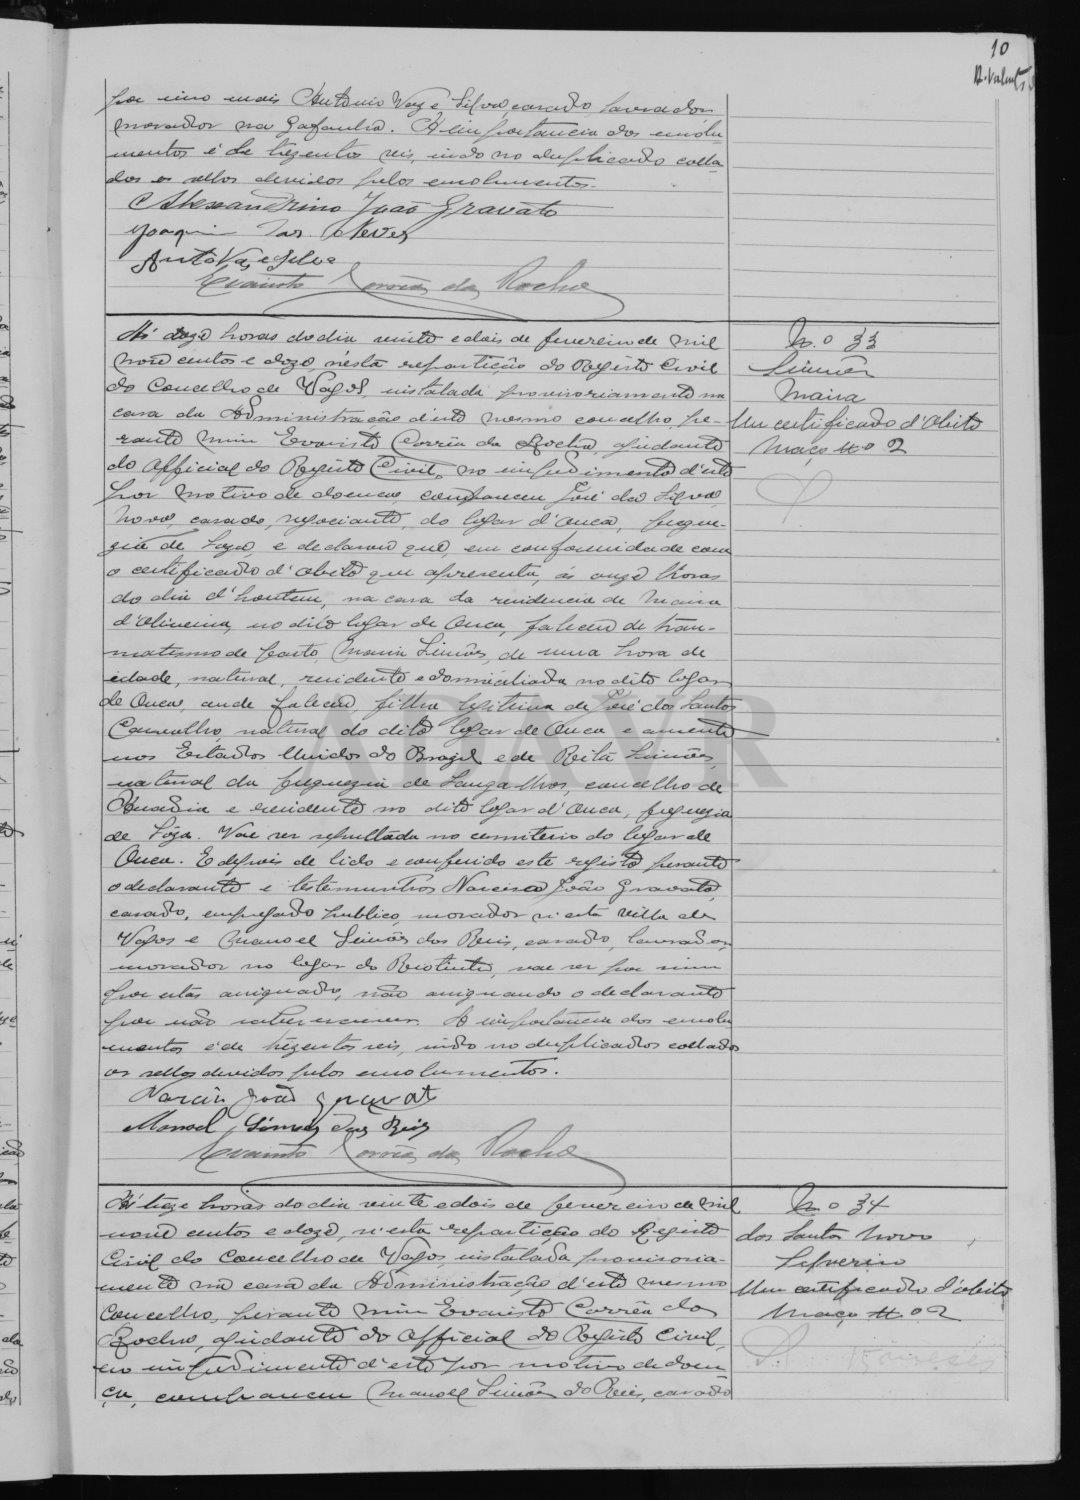 10
por mim mais Antonio Vaz e Silva casado, lavrador
morador na Gafanha. A importancia dos emolu
mentos é de trezentos reis, indo no duplicado colla
dos os sellos devidos pelos emolumentos.
Alexandrino João Gravato
Joaquim das Neves
Antº Vaz e Silva
Evaristo Corrêa da Rocha
Ás doze horas do dia vinte e dois de fevereiro de mil
nove centos e doze, n'esta repartição do Registo Civil
do Concelho de Vagos, instalada provisoriamente na
casa da Administração d'este mesmo concelho, pe-
rante mim Evaristo Corrêa da Rocha, ajudante
do Official do Registo Civil, no impedimento d'este
por motivo de doença, compareceu José da Silva
Novo, casado, negociante, do logar d'Ouca, fregue-
zia de Soza, e declarou que, em conformidade com
o certificado d'obito que apresenta, ás onze horas
do dia d'hontem, na casa da residencia de Maria
d'Oliveira, no dito logar de Ouca, faleceu de trau-
matismo de parto, Maria Simões, de uma hora de
edade, natural, residente e domiciliada no dito logar
de Ouca, onde faleceu, filha legitima de José dos Santos
Carvalho, natural do dito logar de Ouca e ausente
nos Estados Unidos do Brazil e de Rita Simões,
natural da freguezia de Sangalhos, concelho de
Anadia e residente no dito logar d'Ouca, freguezia
de Soza. Vae ser sepultada no cemiterio do logar de
Ouca. E depois de lido e conferido este registo perante
o declarante e testemunhas Narciso João Gravato,
casado, empregado publico, morador n'esta villa de
Vagos e Manoel Simões dos Reis, casado, lavrador,
morador no logar do Rio Tinto, vae ser por mim
por estas assignado, não assignando o declarante
por não saber escrever. A importancia dos emolu
mentos é de trezentos reis, indo no duplicado collados
os sellos devidos pelos emolumentos.
Narciso João Gravato
Manoel Simões dos Reis
Evaristo Corrêa da Rocha
N.º 33
Simões
Maria
Um certificado d'obito
Maço nº 2
Ás treze horas do dia vinte e dois de fevereiro de mil
nove centos e doze, n'esta repartição do Registo
Civil do Concelho de Vagos, instalada provisoria-
mente na casa da Administração d'este mesmo
Concelho, perante mim Evaristo Corrêa da
Rocha, ajudante do Official do Registo Civil,
no impedimento d'este por motivo de doen
ça, compareceu Manoel Simões do Reis, casado
N.º 34
dos Santos Novo
Silverio
Um certificado d'obito
Maço nº 2
ADAVR